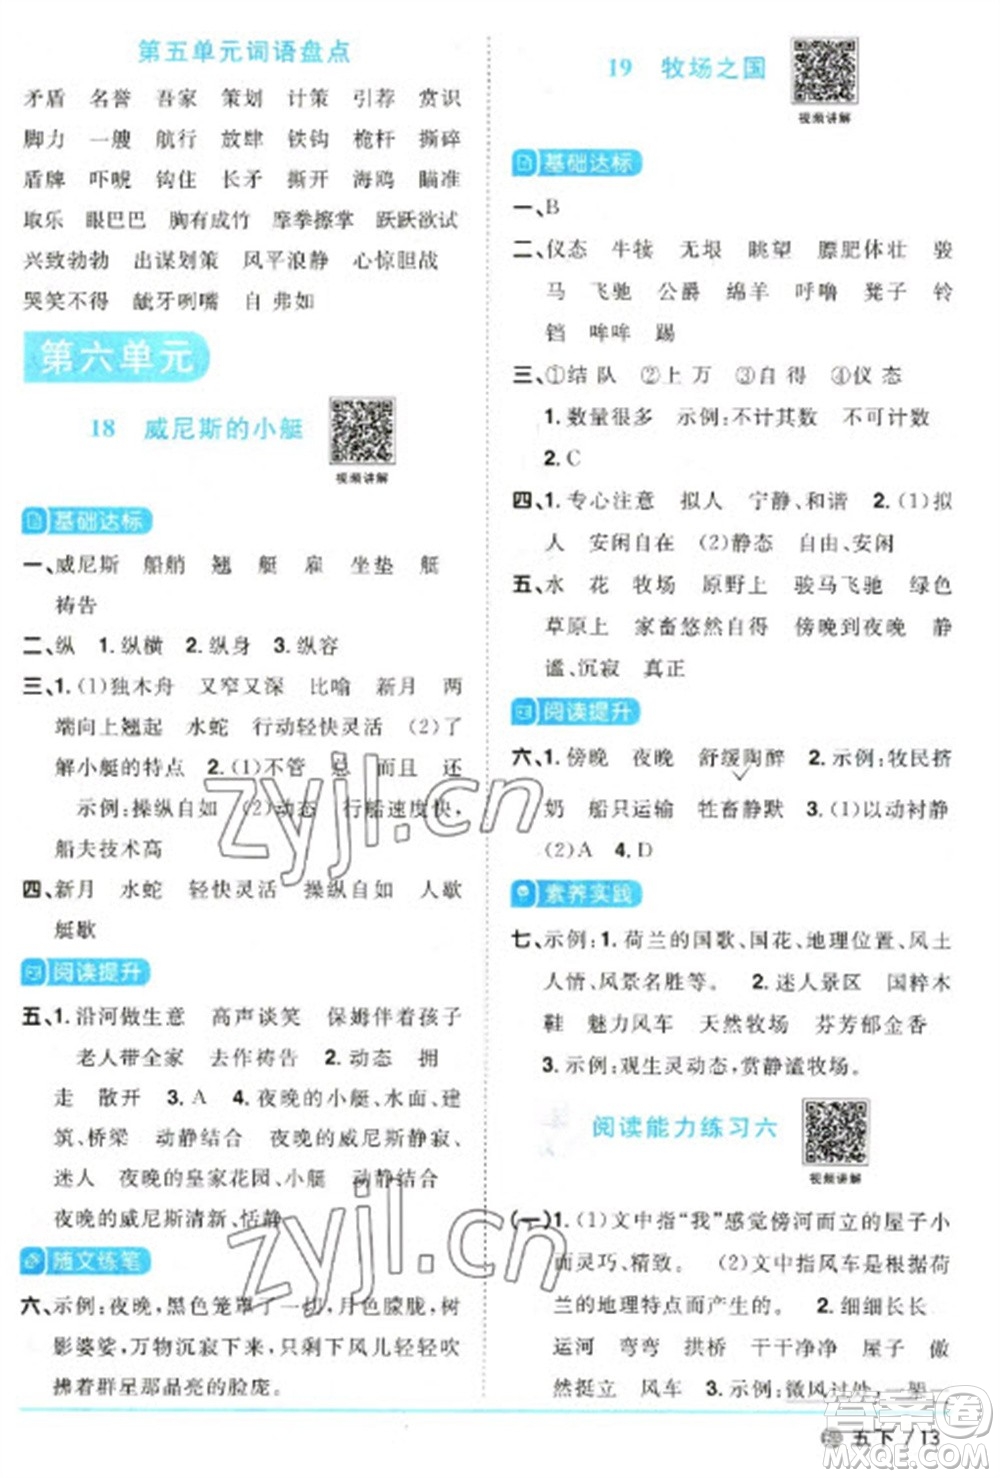 第五单元词语盘点
矛盾 名誉 吾家 策划 计策 引荐 赏识
脚力 一艘 航行 放肆 铁钩 桅杆 撕碎
盾牌 吓唬 钩住 长矛 撕开 海鸥 瞄准
取乐 眼巴巴 胸有成竹 摩拳擦掌 跃跃欲试
兴致勃勃 出谋划策 风平浪静 心惊胆战
哭笑不得 龇牙咧嘴 自 弗如
第六单元
18 威尼斯的小艇
视频讲解
基础达标
一、威尼斯 船艄 翘 艇 雇 坐垫 艇
祷告
二、纵 1.纵横 2.纵身 3.纵容
三、1.(1)独木舟 又窄又深 比喻 新月 两
端向上翘起 水蛇 行动轻快灵活 (2)了
解小艇的特点 2.(1)不管 总 而且 还
示例:操纵自如 (2)动态 行船速度快,
船夫技术高
四、新月 水蛇 轻快灵活 操纵自如 人歇
艇歇
阅读提升
五、1.沿河做生意 高声谈笑 保姆伴着孩子
老人带全家 去作祷告 2.动态 拥
走 散开 3.A 4.夜晚的小艇、码头、建
筑、桥梁 动静结合 夜晚的威尼斯静寂、
迷人 夜晚的皇家花园、小艇 动静结合
夜晚的威尼斯清新、恬静
随文练笔
六、示例:夜晚,黑色笼罩了一切,月色朦胧,树
影婆娑,万物沉寂下来,只剩下风儿轻轻吹
拂着群星那晶亮的脸庞。
19 牧场之国
视频讲解
基础达标
一、B
二、仪态 牛犊 无垠 眺望 膘肥体壮 骏
马 飞驰 公爵 绵羊 呼噜 凳子 铃
铛 哞哞 踢
三、①结队 ②上万 ③自得 ④仪态
1.数量很多 示例:不计其数 不可计数
2.C
四、1.专心注意 拟人 宁静、和谐 2.(1)拟
人 安闲自在 (2)静态 自由、安闲
五、水 花 牧场 原野上 骏马飞驰 绿色
草原上 家畜悠然自得 傍晚到夜晚 静
谧、沉寂 真正
阅读提升
六、1.傍晚 夜晚 舒缓陶醉 2.示例:牧民挤
奶 船只运输 牲畜静默 3.(1)以动衬静
(2)A 4.D
素养实践
七、示例:1.荷兰的国歌、国花、地理位置、风土
人情、风景名胜等。 2.迷人景区 国粹木
鞋 魅力风车 天然牧场 芬芳郁金香
3.示例:观生灵动态,赏静谧牧场。
阅读能力练习六
视频讲解
(一)1.(1)文中指“我”感觉傍河而立的屋子小
而灵巧、精致。 (2)文中指风车是依据荷
兰的地理特点而产生的。 2.细细长长
运河 弯弯 拱桥 干干净净 屋子 傲
然挺立 风车 3.示例:微风过处,一架
五下/13
zyjl.cn
zyjl.cn
答案圈
MXQE.COM